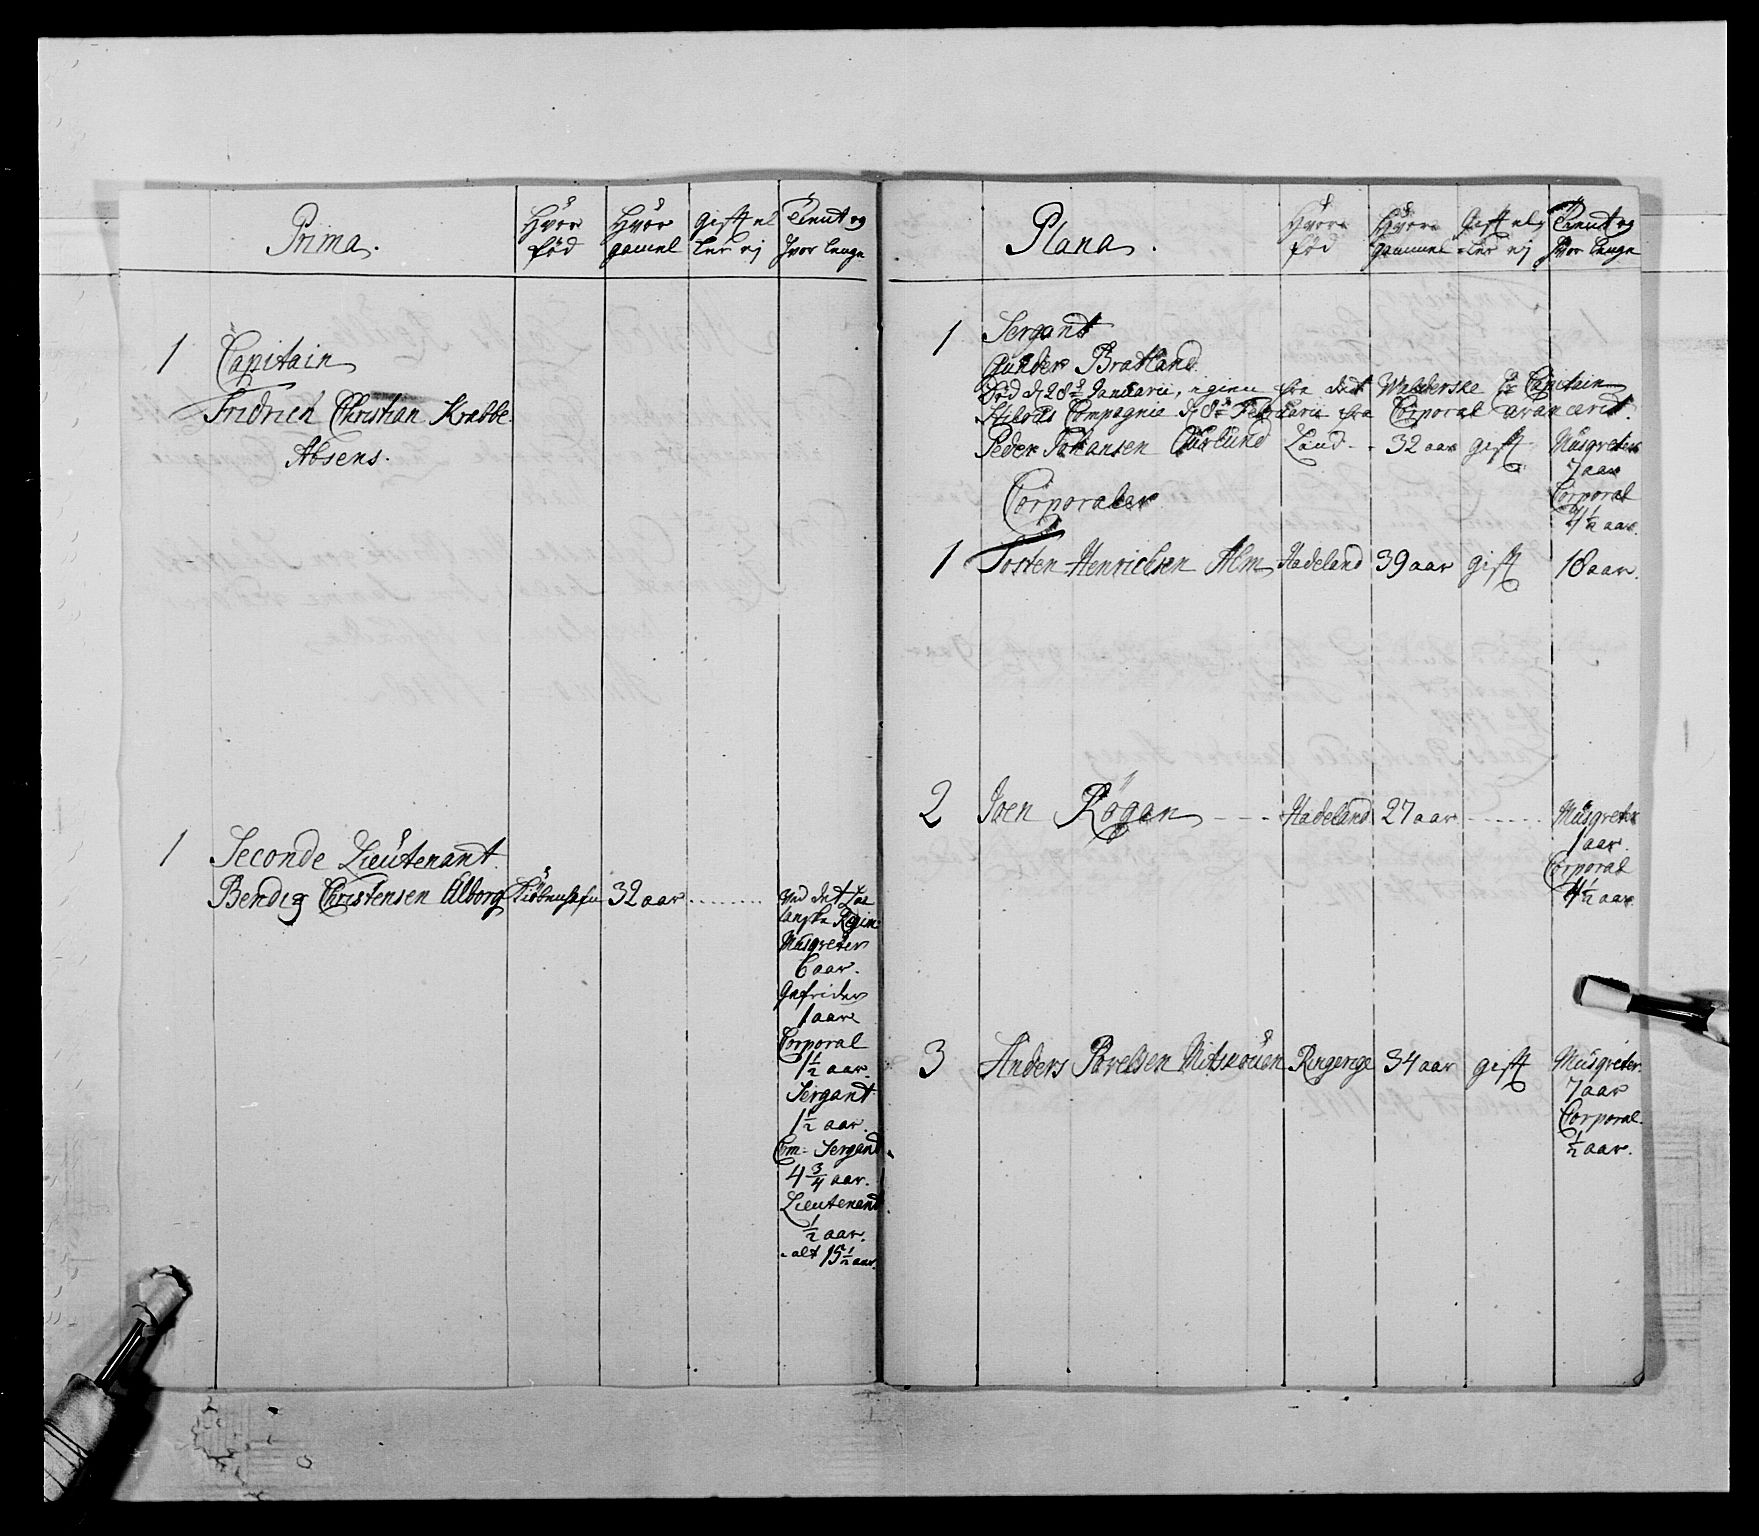 Prima.
Hvor fød
Hvor gamel
Gift el ler ej
Tient og hvor lenge
1 Capitain
Fridrich Christian Krabbe.
Absens.
1 Seconde Lieutenant
Bendig Christensen Alborg Kiöbenhafn 32 aar
Ved det
Regim:
Musqveter
6 aar.
Gefrider
1 aar
Corporal
1½ aar.
Sergant
1½ aar.
Com- Sergand
4¾ aar.
Lieutenand
½ aar.
alt 15½ aar.
Plana.
Hvor fød
Hvor gammel
Gift el ler ej
Tient og hvor lenge
1 Sergant
Gunder Bratland
Död d 28de Januarii, igien fra det Walderske Capitain
Compagnie d 8de Februarii fra Corporal avancerit.
Peder Johansen Land - 32 aar gift Musqveter
7 aar
Corporal
4½ aar.
Corporaler
1 Tosten Henrichsen Alm Hadeland 39 aar gift 18 aar.
2 Joen Røgan Hadeland 27 aar Musqveter
1 aar.
Corporal
4½ aar.
3 Anders Ringerige 34 aar gift Musqveter
7 aar
Corporal.
½ aar.